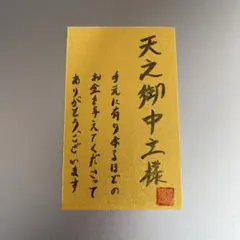 天之御中主様
手元に有り余るほどの
お金を与えてくださって
ありがとうございます